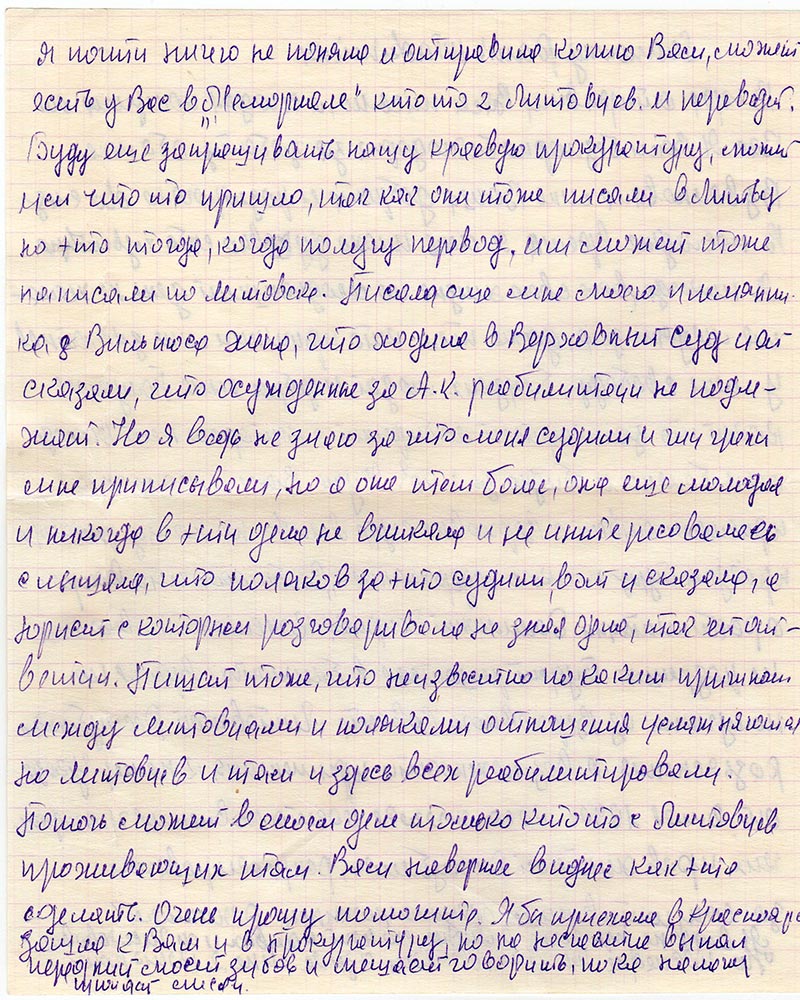 Я почти ничего не поняла и отправила копию Вам, может
есть у Вас в "Мемориале" кто то з Литовцев и переведет.
Буду еще запрашивать нашу краевую прокуратуру, может
им что то пришло, так как они тоже писали в Литву
но это тогда, когда получу перевод, им может тоже
написали по литовске. Писала еще мне моего племянни-
ка з Вильнюса жена, что ходила в Верховный суд и ей
сказали, что осужденные за А.К. реабилитации не подле-
жат. Но я ведь не знаю за что меня судили и чьи грехи
мне приписывали, но а она тем более, она еще молодая
и никогда в эти дела не вникала и не интересовалась
слышала, что поляков за это судили, вот и сказала, а
юрист с которым разговаривала не зная дела, так ей от-
ветил. Пишат тоже, что неизвестно по каким причинам
между литовцами и поляками отношения
но литовцев и там и здесь всех реабилитировали.
Помочь может в моем деле только кто то с Литовцев
проживающих там. Вам наверное виднее как это
сделать. Очень прошу помогите. Я бы приехала в Краснояр
зашла к Вам и в прокуратуру, но по несчастье выпал
передний мост зубов и мешает говорить, пока